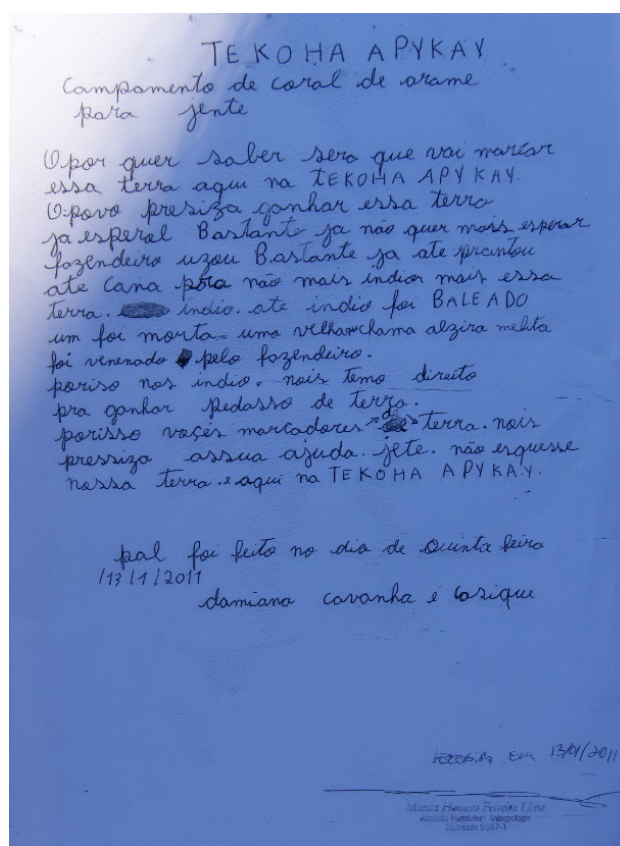 TEKOHA APYKAY
Campamento de coral de arame
para jente
O por quer saber sera que vai marcar
essa terra aqui na TEKOHA APYKAY.
O povo presiza ganhar essa terra
ja esperal Bastante ja não quer mais esperar
fazendeiro uzou Bastante ja ate prantou
ate cana pra não mais índior mais essa
terra. indio. ate indio foi BALEADO
um foi morta. uma velha chama alzira melita
foi venenado pelo fazendeiro.
poriso nos índio. nois temo direito
pra ganhar pedasso de terra.
porisso voçes marcadores de terra. nois
pressiza assua ajuda. jete. não esquesse
nossa terra. e aqui na TEKOHA APYKAY.
pal foi feito no dia de Quinta feira
/13/1/2011
damiana cavanha é casique
recebido em 13/01/2011
Marcos Homero Ferreira Lima
Analista Pericial em Antropologia